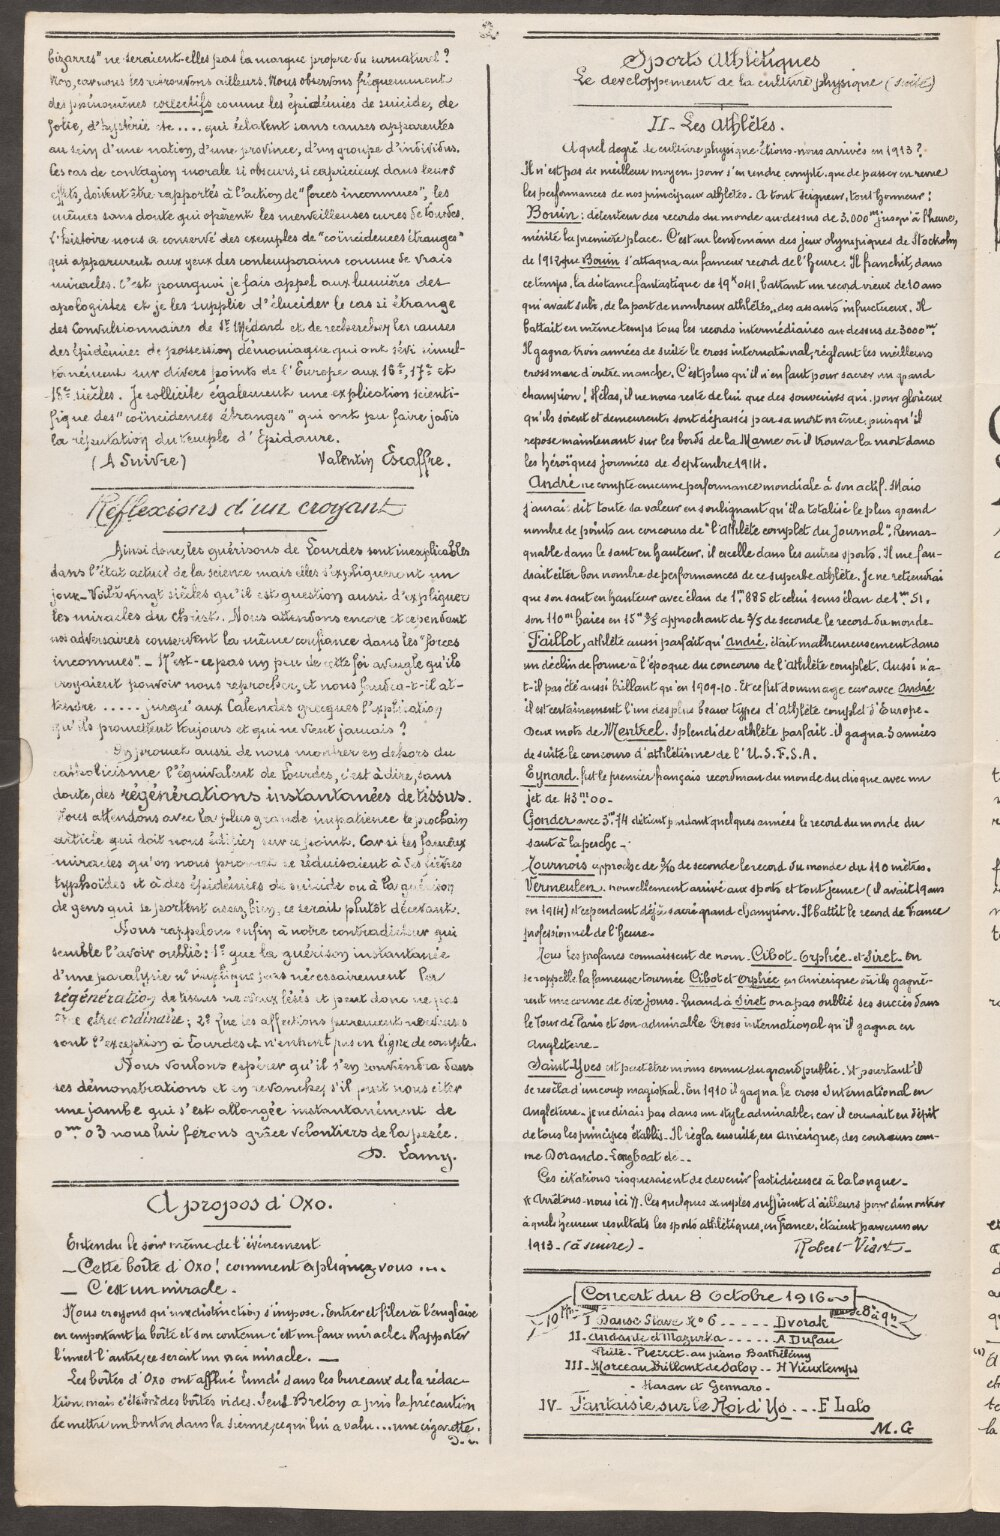 2
bizarres" ne seraient-elles pas la marque propre du surnaturel ?
Non, car nous les retrouvons ailleurs. Nous observons fréquemment
des phénomènes collectifs comme les épidémies de suicide, de
folie, d'hystérie etc .... qui éclatent sans causes apparentes
au sein d'une nation, d'une province, d'un groupe d'individus.
Les cas de contagion morale si obscurs, si capricieux dans leurs
effets, doivent être rapportés à l'action de "forces inconnues", les
mêmes sans doute qui opèrent les merveilleuses cures de Lourdes.
L'histoire nous a conservé des exemples de "coïncidences étranges"
qui apparurent aux yeux des contemporains comme de vrais
miracles. C'est pourquoi je fais appel aux lumières des
apologistes et je les supplie d'élucider le cas si étrange
des Convulsionnaires de St Médard et de rechercher les causes
des épidémies de possession démoniaque qui ont sévi simul-
tanément sur divers points de l'Europe aux 16e, 17e et
18e siècles. Je sollicite également une explication scienti-
fique des "coïncidences étranges" qui ont pu faire jadis
la réputation du temple d'Epidaure.
(A Suivre) Valentin Escaffre.
Réflexions d'un croyant
Ainsi donc, les guérisons de Lourdes sont inexplicables
dans l'état actuel de la science mais elles s'expliqueront un
jour - Voilà vingt siècles qu'il est question aussi d'expliquer
les miracles du Christ. Nous attendons encore et cependant
nos adversaires conservent la même confiance dans les "forces
inconnues". - N'est-ce pas un peu de cette foi aveugle qu'ils
croyaient pouvoir nous reprocher, et nous faudra-t-il at-
tendre ..... jusqu'aux Calendes grecques l'explication
qu'ils promettent toujours et qui ne vient jamais ?
On promet aussi de nous montrer en dehors du
catholicisme l'équivalent de Lourdes, c'est à dire, sans
doute, des régénérations instantanées de tissus.
Nous attendons avec la plus grande impatience le prochain
article qui doit nous édifier sur ce point. Car si les fameux
miracles qu'on nous promet se réduisaient à des fièvres
typhoïdes et à des épidémies de suicide ou à la guérison
de gens qui se portent assez bien, ce serait plutôt décevant.
Nous rappelons enfin à notre contradicteur qui
semble l'avoir oublié : 1º que la guérison instantanée
d'une paralysie n'implique pas nécessairement la
régénération de tissus nerveux lésés et peut donc ne pas
être extraordinaire ; 2º que les affections purement nerveuses
sont l'exception à Lourdes et n'entrent pas en ligne de compte.
Nous voulons espérer qu'il s'en souviendra dans
ses démonstrations et en revanche, s'il peut nous citer
une jambe qui s'est allongée instantanément de
0m.03 nous lui ferons grâce volontiers de la pesée.
D. Lamy.
A propos d'Oxo.
Entendu le soir même de l'événement
- Cette boîte d'Oxo ! comment expliquez vous ....
- C'est un miracle.
Nous croyons qu'une distinction s'impose. Entrer et filer à l'anglaise
en emportant la boîte et son contenu c'est un faux miracle. Rapporter
l'une et l'autre, ce serait un vrai miracle. -
Les boîtes d'Oxo ont afflué lundi dans les bureaux de la rédac-
tion. mais c'étaient des boîtes vides. Seul Breton a pris la précaution
de mettre un bouton dans la sienne, ce qui lui a valu ... une cigarette.
Sports Athlétiques
Le développement de la culture physique (suite)
II - Les Athlètes.
A quel degré de culture physique étions-nous arrivés en 1913 ?
Il n'est pas de meilleur moyen pour s'en rendre compte que de passer en revue
les performances de nos principaux athlètes. A tout seigneur, tout honneur :
Bouin : détenteur des records du monde au-dessus de 3.000m jusqu'à l'heure,
mérite la première place. C'est au lendemain des jeux olympiques de Stockolm
de 1912 que Bouin s'attaqua au fameux record de l'heure. Il franchit, dans
ce temps, la distance fantastique de 19K041, battant un record vieux de 10 ans
qui avait subi, de la part de nombreux athlètes, des assauts infructueux. Il
battait en même temps tous les records intermédiaires au dessus de 3000m.
Il gagna trois années de suite le cross international, réglant les meilleurs
crossmen d'outre-manche. C'est plus qu'il n'en faut pour sacrer un grand
champion ! Hélas, il ne nous reste de lui que des souvenirs qui, pour glorieux
qu'ils soient et demeurent, sont dépassés par sa mort même, puisqu'il
repose maintenant sur les bords de la Marne où il trouva la mort dans
les héroïques journées de Septembre 1914.
André ne compte aucune performance mondiale à son actif. Mais
j'aurai dit toute sa valeur en soulignant qu'il a totalisé le plus grand
nombre de points au concours de "l'athlète complet du Journal". Remar-
quable dans le saut en hauteur, il excelle dans les autres sports. Il me fau-
drait citer bon nombre de performances de ce superbe athlète. Je ne retiendrai
que son saut en hauteur avec élan de 1m.885 et celui sans élan de 1m51.
son 110m haies en 15" 2/5 approchant de 2/5 de seconde le record du monde.
Faillot, athlète aussi parfait qu'André, était malheureusement dans
un déclin de forme à l'époque du concours de l'athlète complet. Aussi n'a-
t-il pas été aussi brillant qu'en 1909-10. Et ce fut dommage car avec André
il est certainement l'un des plus beaux types d'Athlète complet d'Europe.
Deux mots de Mentrel. Splendide athlète parfait. il gagna 3 années
de suite le concours d'athlétisme de l'U.S.F.S.A.
Eynard fut le premier français recordman du monde du disque avec un
jet de 43m.00.
Gonder avec 3m.74 détient pendant quelques années le record du monde du
saut à la perche -
Tournois approche de 2/10 de seconde le record du monde du 110 mètres.
Vermeulen, nouvellement arrivé aux sports et tout jeune (il avait 19 ans
en 1914) et cependant déjà sacré grand champion. Il battit le record de France
professionnel de l'heure.
Tous les profanes connaissent de nom Cibot - Orphée et Siret. On
se rappelle la fameuse tournée Cibot et Orphée en Amérique où ils gagnè-
rent une course de six jours. Quand à Siret on a pas oublié ses succès dans
le Tour de Paris et son admirable Cross international qu'il gagna en
Angleterre -
Saint-Yves est peut être moins connu du grand public. Et pourtant il
se révéla d'un coup magistral. En 1910 il gagna le cross international en
Angleterre - je ne dirais pas dans un style admirable, car il courait en dépit
de tous les principes établis. Il régla ensuite, en Amérique, des coureurs com-
me Dorando - Longboat etc - -
Ces citations risqueraient de devenir fastidieuses à la longue -
« Arrêtons-nous ici ». Ces quelques exemples suffisent d'ailleurs pour démontrer
à quels heureux résultats les sports athlétiques, en France, étaient parvenus en
1913 - (à suivre) - Robert-Visct -
Concert du 8 Octobre 1916
de 8h à 9h
I Danse Slave Nº 6 ..... Dvorak
II - Andante et Mazurka ..... A Dufau
Flûte - Pierret - au piano Barthélémy
III - Morceau Brillant de Salon .. H Vieuxtemps
- Haran et Gennaro -
IV - Fantaisie sur le Roi d'Ys ... E Lalo
M. G